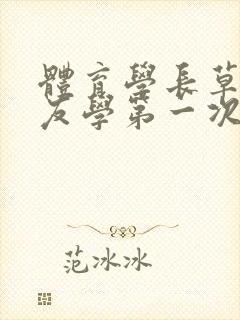 體育學長草
友學第一次
范冰冰